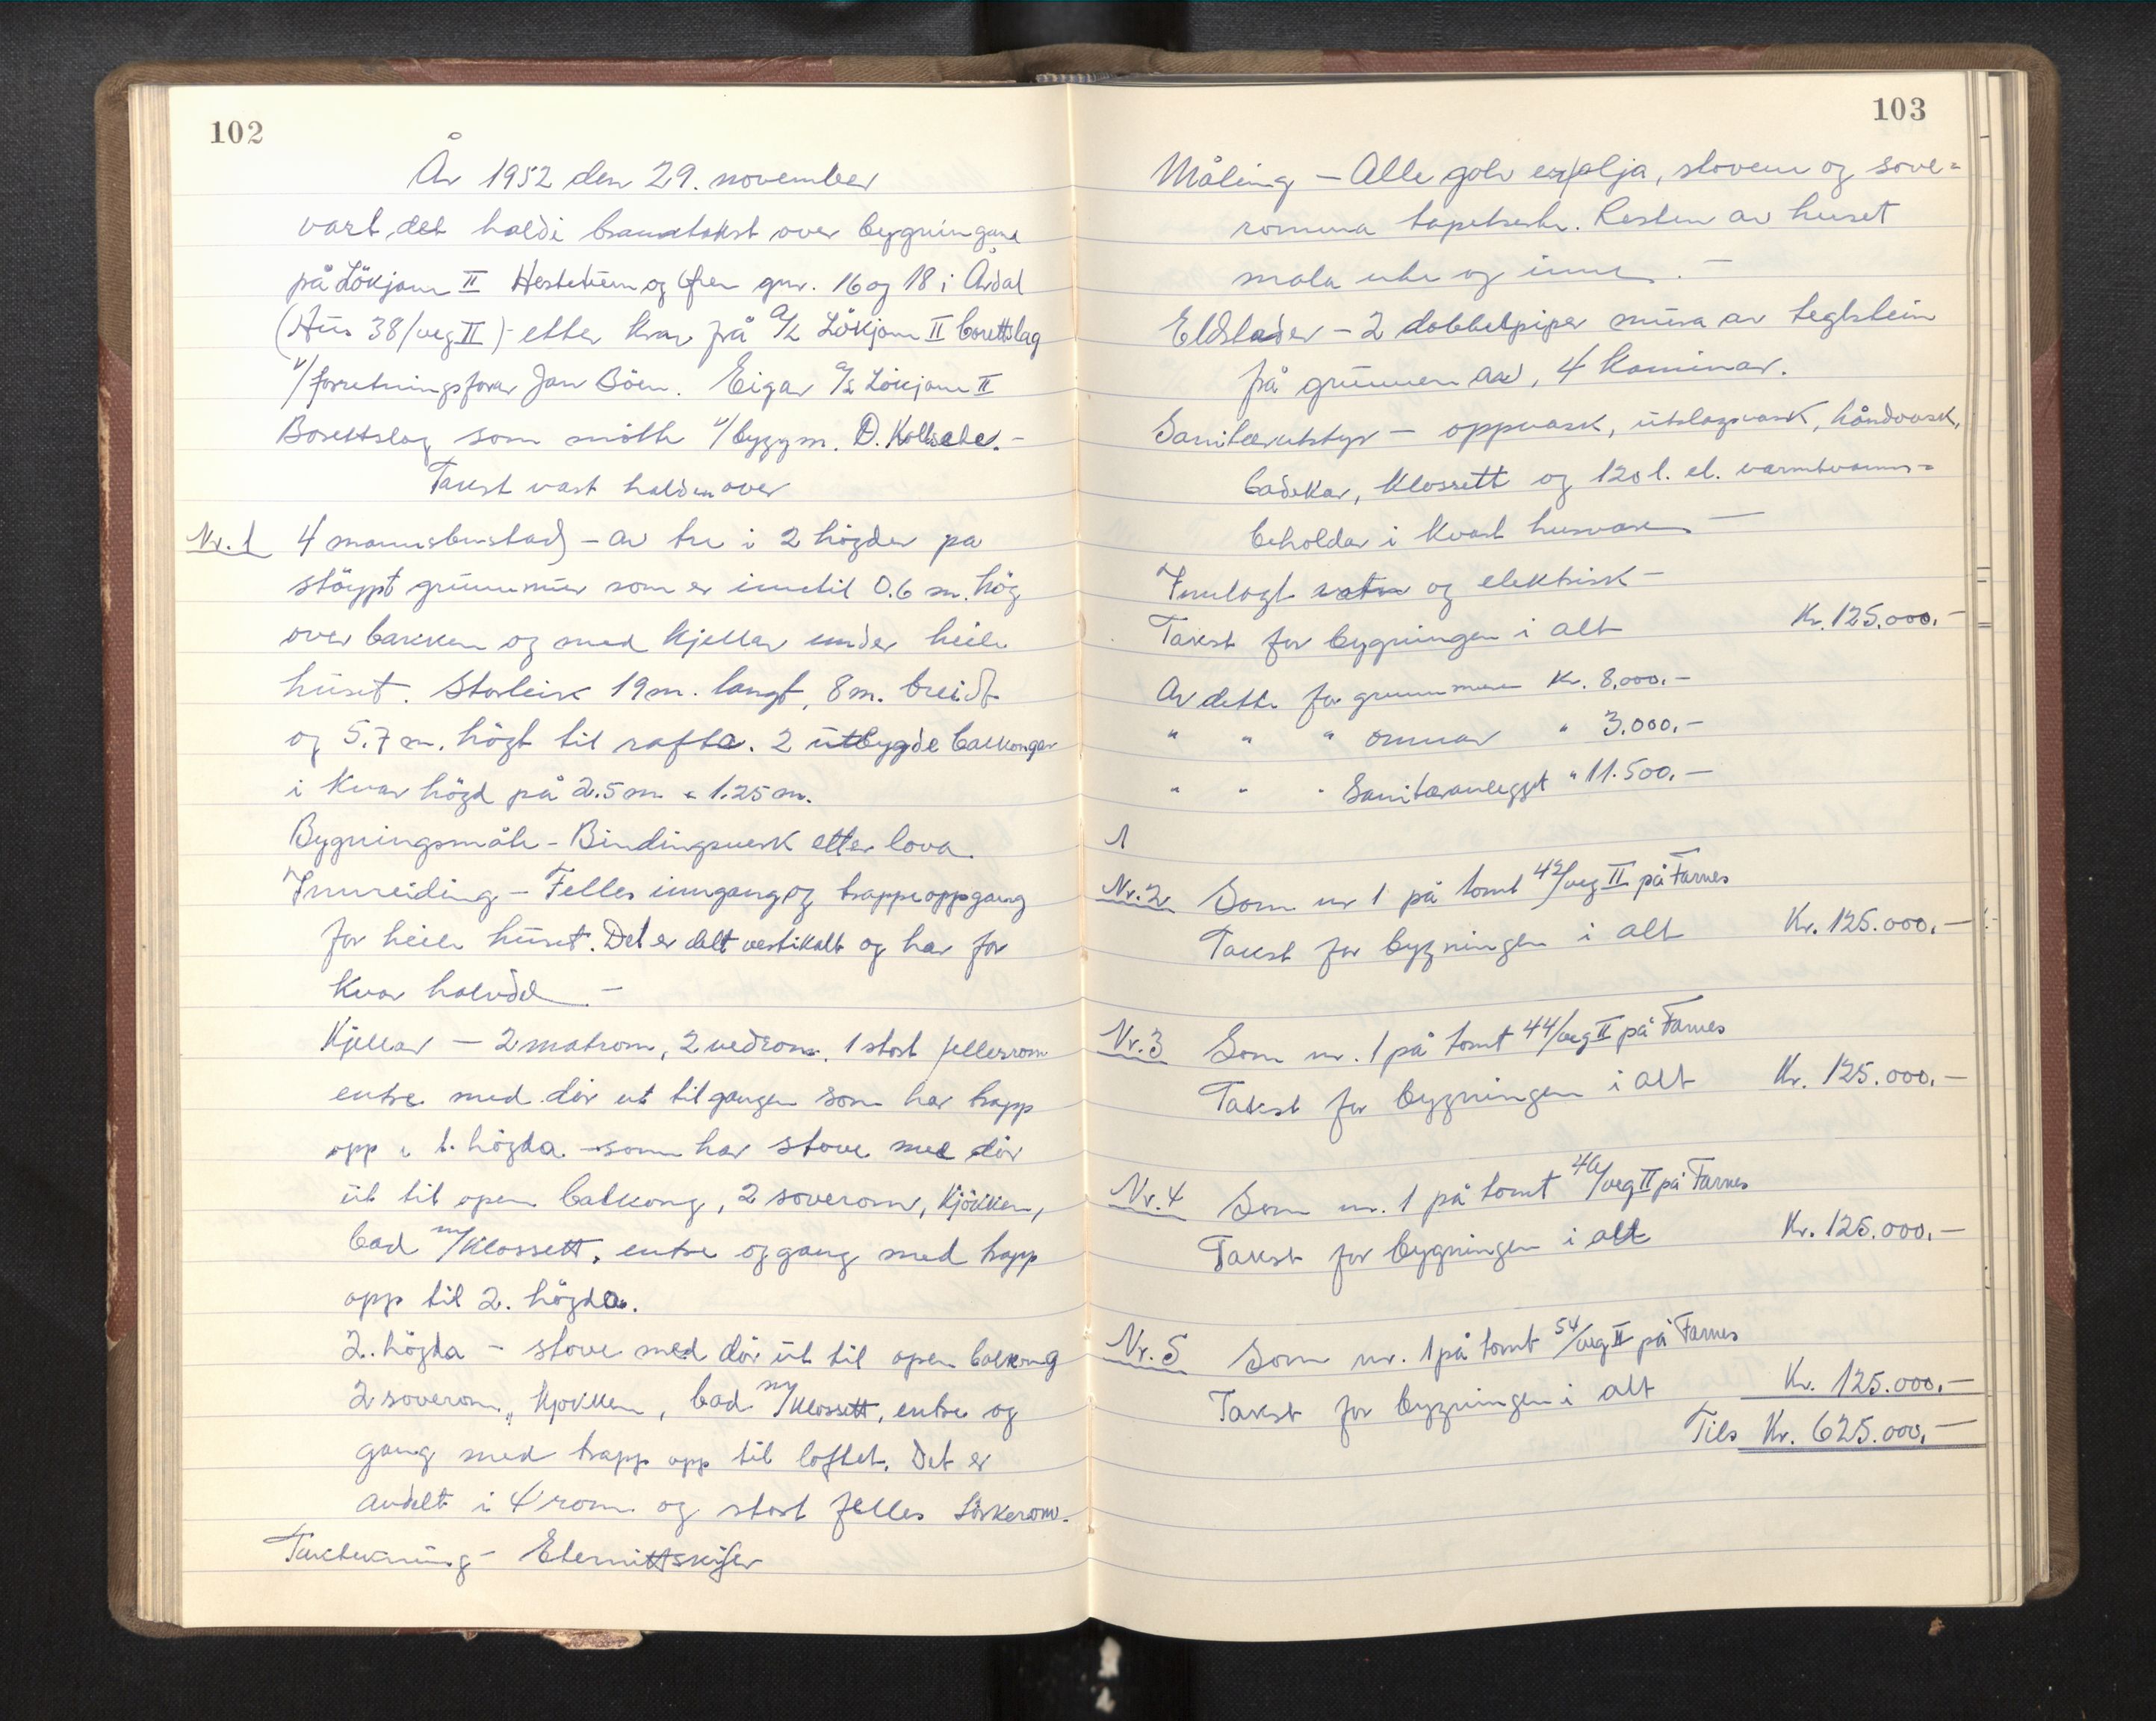 102
År 1952 den 29. november
vart det haldi branntakst over bygningane
på Lökjam II Hestetún og Øren gnr. 16 og 18 i Årdal
(Hus 38/veg II) - etter krav frå A/L Lökjam II borettslag
v/forretningsförar Jan Böen. Eigar A/L Lökjam II
Borettslag som mötte v/byggm. D.
Takst vart halden over
Nr. 1 4 mannsbustad - av tre i 2 högder pa
stöypt grunnmur som er inntil 0.6 m. hög
over bakken og med kjellar under heile
huset. Storleik 19 m. langt, 8 m. breidt
og 5.7 m. högt til rafta. 2 utbygde balkongar
i kvar högd på 2.5 m × 1.25 m.
Bygningsmåte - Bindingsverk etter lova.
Innreiding - Felles inngang og trappeoppgang
for heile huset. Det er delt vertikalt og har for
kvar halvdel. -
Kjellar - 2 matrom, 2 vedrom, 1 stort fellesrom
entre med dör ut til gangen som har trapp
opp i 1. högda - som har stove med dör
ut til open balkong, 2 soverom, kjökken,
bad m/klossett, entre og gang med trapp
opp til 2. högda.
2. högda - stove med dör ut til open balkong
2 soverom, kjökken, bad m/klossett, entre og
gang med trapp opp til loftet. Det er
avdelt i 4 rom og stort felles törkerom.
Taktekning - Eternittskifer
103
Måling - Alle golv er olja, stovene og sove=
romma tapetserte. Resten av huset
mala ute og inne. -
Eldstader - 2 dobbelpiper mura av teglstein
frå grunnen av, 4 kaminar.
Sanitærutstyr - oppvask, utslagsvask, håndvask,
badekar, klossett og 120 l. el. varmtvanns=
beholdar i kvart husvære -
Innlagt vatn og elektrisk -
Takst for bygningen i alt Kr. 125.000.-
Av dette for grunnmur Kr. 8.000.-
" " " omnar " 3.000.-
" " " Sanitæranlegget " 11.500.-
1
Nr. 2 Som nr 1 på tomt 42/veg II på Farnes
Takst for bygningen i alt Kr. 125.000.-
Nr. 3 Som nr. 1 på tomt 44/veg II på Farnes
Takst for bygningen i alt Kr. 125.000.-
Nr. 4 Som nr. 1 på tomt 40/veg II på Farnes
Takst for bygningen i alt Kr. 125.000.-
Nr. 5 Som nr. 1 på tomt 54/veg II på Farnes
Takst for bygningen i alt Kr. 125.000.-
Tils Kr. 625.000.-